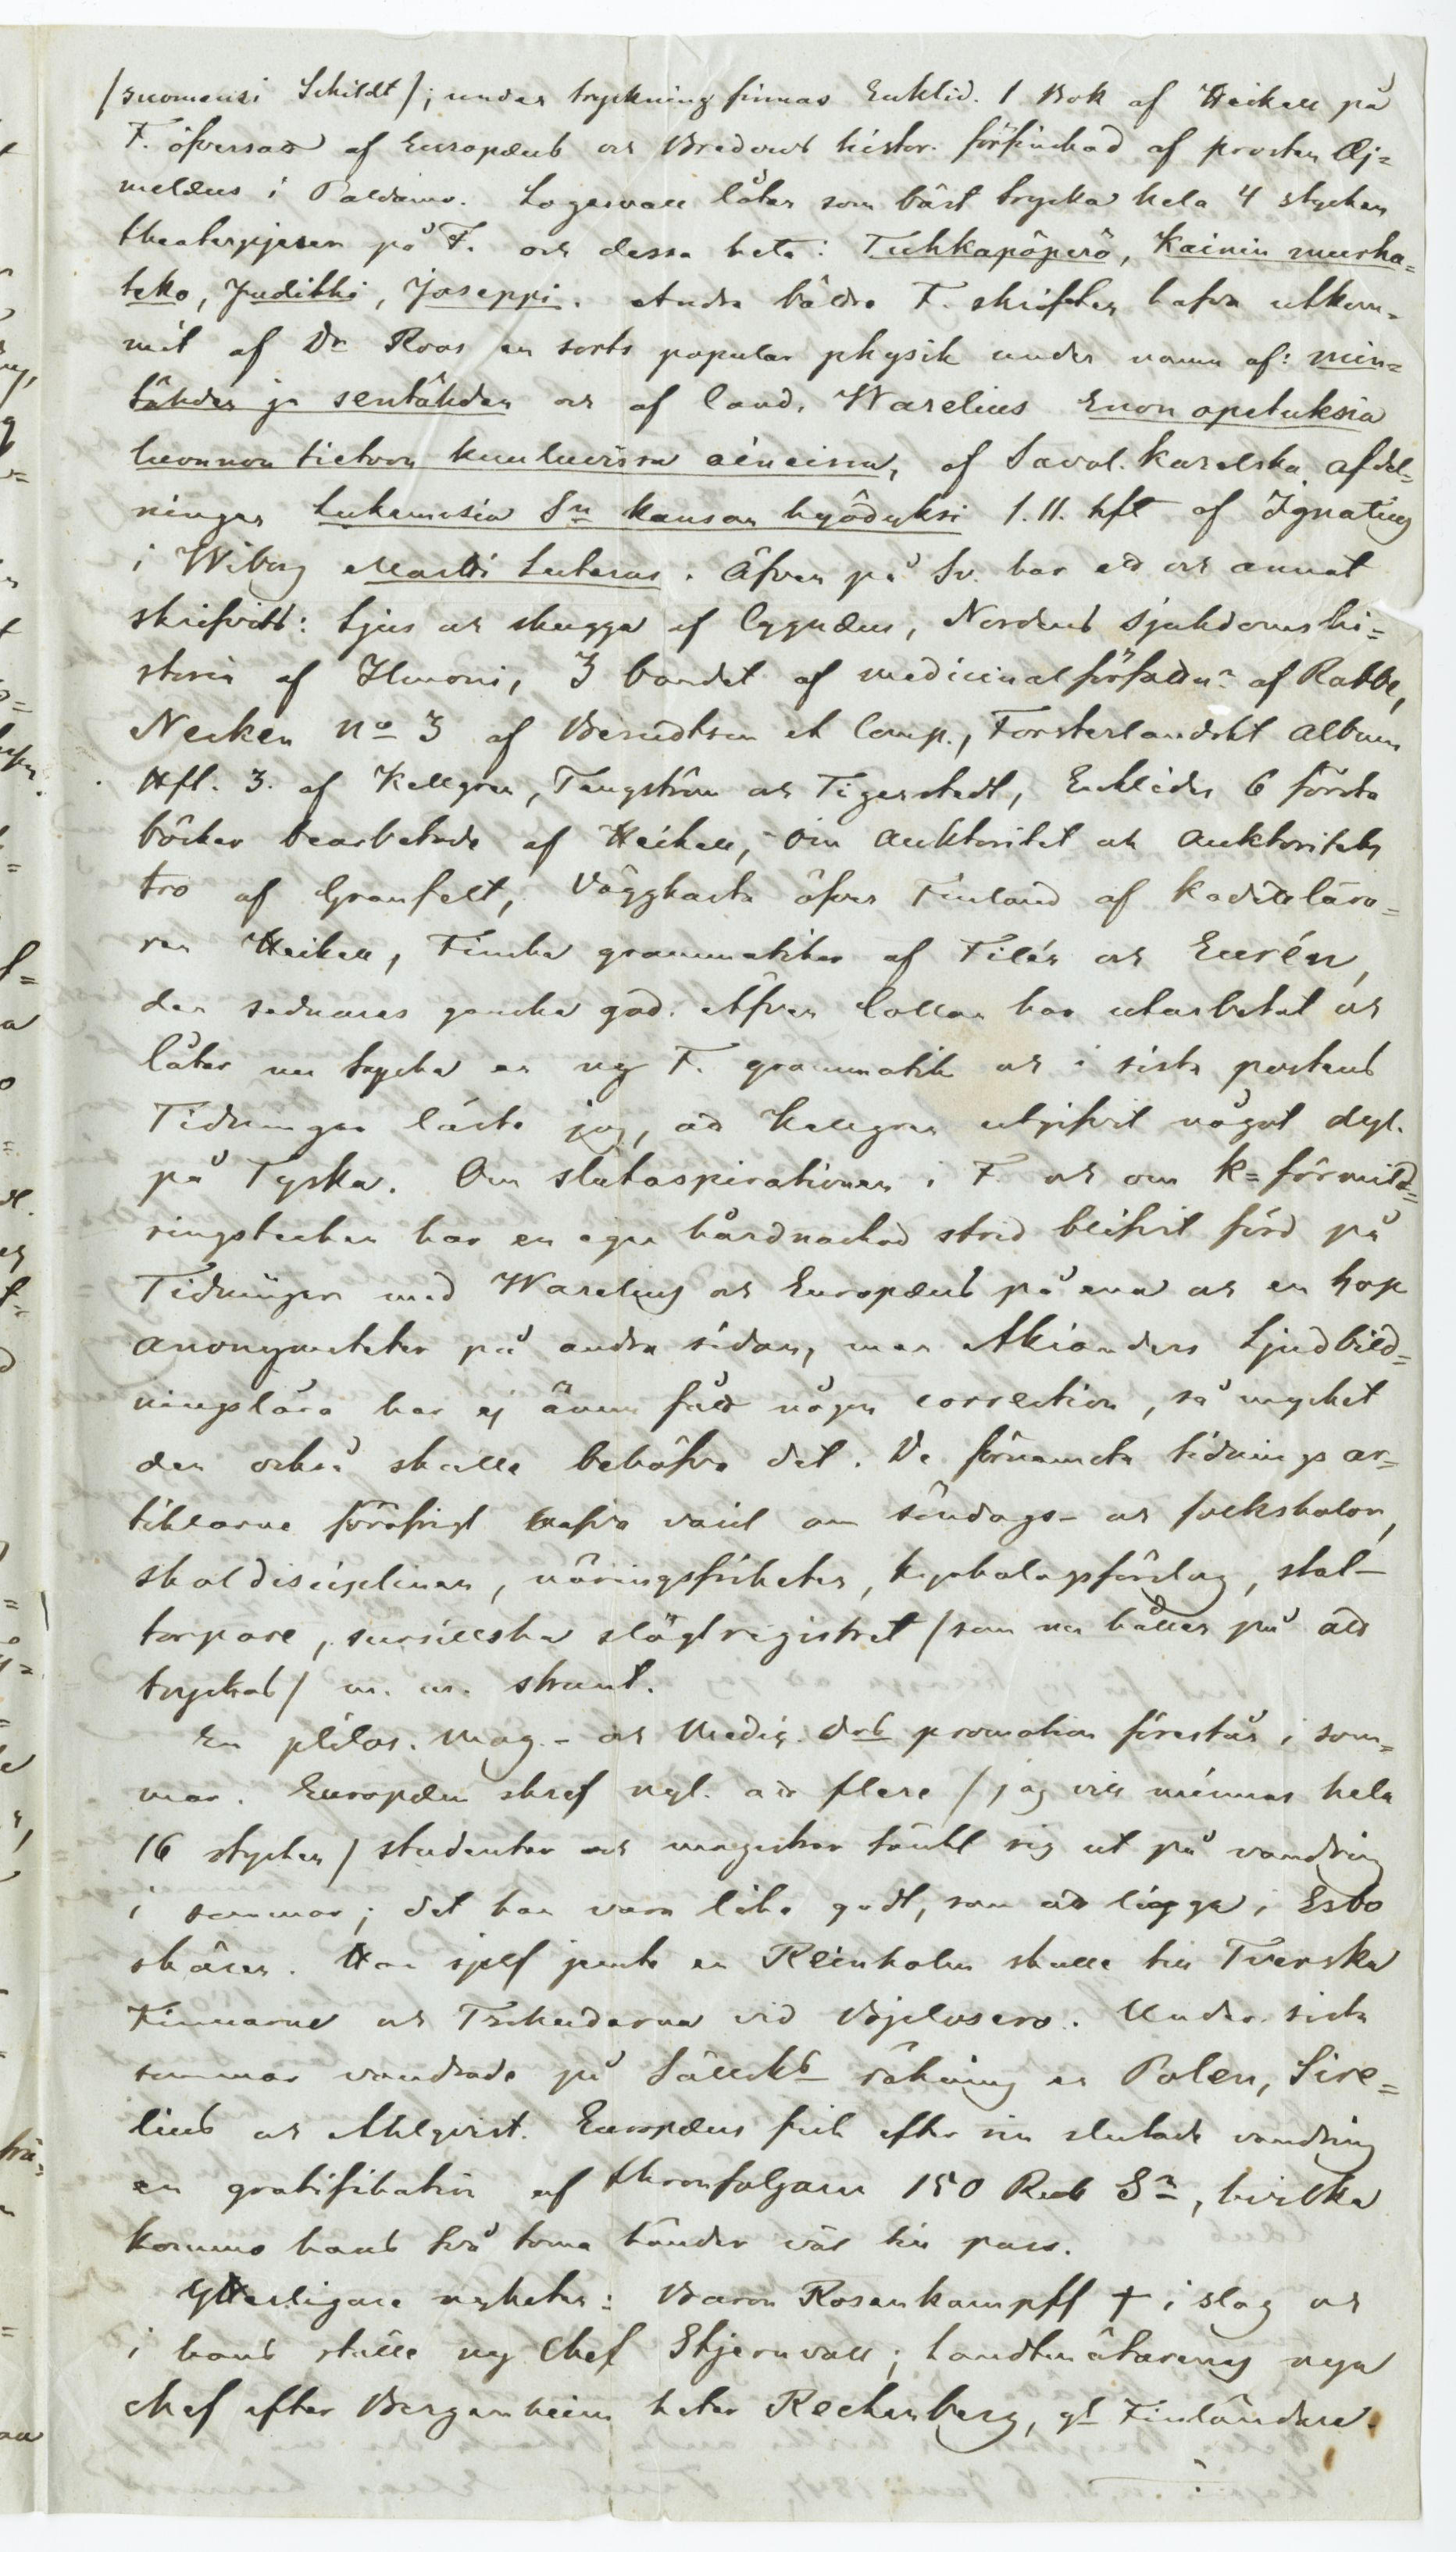 /suomensi Schildt/; under tryckning finnas Euklid. 1 Bok af Heikell på
F. öfversatt af Europæus och Bredows histor. förfinskad af prosten Ej=
melæus i Paldamo. Lagervall låter som bäst trycka hela 4 stycken
theaterpjeser på F. och dessa heta: Tuhkapöperö, Kainin murha=
teko, Judithi, Joseppi. Andra bättre F. skrifter hafva utkom=
mit af Dr Roos en sorts popular physik under namn af: min=
tähden ja sentähden och af Cand. Warelius Enon opetuksia
luonnon tietoon kuuluvissa aineissa, af Savol. Karelska afdel=
ningen Lukemisia Sn kansan hyödyksi 1. 11. hft af Ignatius
i Wiborg Martti Luterus. Äfven på Sv. har ett och annat
skrifvits: Ljus och skugga af Cygnæus, Nordens sjukdomshi=
storia af Ilmoni, 3 bandet af medicinalförfattnr af Rabbe,
Necken No 3 af Berndtson et Comp., Fosterländskt Album
Hft. 3. af Kellgren, Tengström och Tigerstedt, Euklides 6 första
böcker bearbetade af Heikell, Om Auktoritet och Auktoritets
tro af Granfelt, Väggkarta öfver Finland af kadettlära=
ren Heikell, Finska grammatikor af Tilén och Eurén,
den sednares ganska god. Äfven Collan har utarbetat och
låter nu trycka en ny F. grammatik och i sista postens
Tidningar läste jag, att Kellgren utgifvit något dyl.
på Tyska. Om slutaspirationen i F. och om k=förmild=
ringstecken har en egen hårdnackad strid blifvit förd på
Tidningar med Warelius och Europæus på ena och en hop
anonymiteter på andra sidan, men Akianders Ljudbild=
ningslära har ej ännu fått någon correction, så mycket
den också skulle behöfva det. De förnämsta tidnings ar=
tiklarne föröfrigt hafva varit om söndags- och folkskolor,
skoldisciplinen, näringsfriheten, kyrkolagsförslag, stat-
torpare, sursillska slägtregistret /som nu hålles på att
tryckas/ m. m. strunt.
En philos. Mag.- och Medic. Drs promotion förestår i som=
mar. Europæus skref nyl. att flere /jag vill minnas hela
16 stycken/ studenter och magistrar tänkt sig ut på vandring
i sommar; det kan vara lika godt, som att ligga i Esbo
skären. Han sjelf jemte en Reinholm skulle till Tverska
Finnarne och Tschuderna vid Bjelosero. Under sista
sommar vandrade på Sällsks räkning en Polén, Sire=
lius och Ahlqvist. Europæus fick efter sin slutade vandring
en gratifikation af thronfolgaren 150 Rub Sr, hvilka
kommo hans två toma händer väl till pass.
Ytterligare nyheter: Baron Rosenkampff † i slag och
i hans ställe ny Chef Stjernvall; Landtmätarenes nya
chef efter Bergenheim heter Rechenberg, gl Finländare.